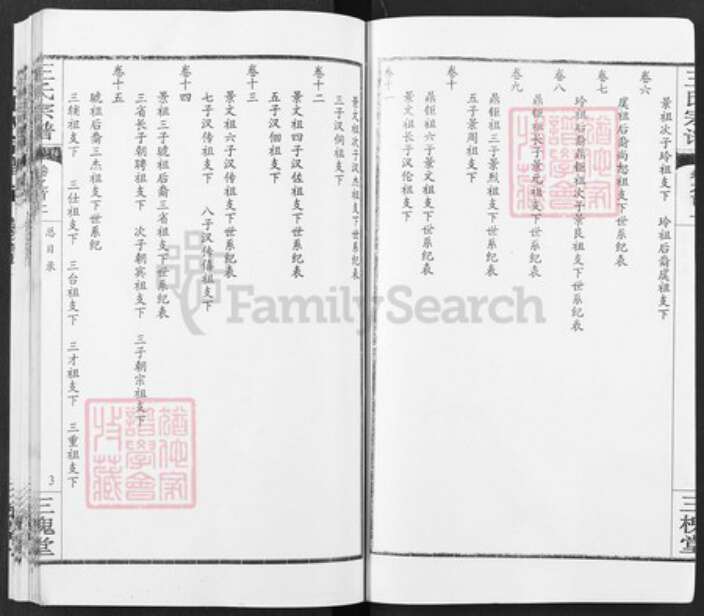 卷六
景祖次子玲祖支下 玲祖后裔虞祖支下
虞祖后裔尚恕祖支下世系纪表
卷七
玲祖后裔鼎钜祖次子景良祖支下世系纪表
卷八
鼎钜祖长子景元祖支下世系纪表
卷九
鼎钜祖三子景烈祖支下世系纪表
五子景周祖支下
卷十
鼎钜祖六子景文祖支下世系纪表
景文祖长子汉伦祖支下
卷十一
景文祖次子汉杰祖支下世系纪表
三子汉伺祖支下
卷十二
景文祖四子汉佐祖支下世系纪表
五子汉佃祖支下
卷十三
景文祖六子汉传祖支下世系纪表
七子汉侍祖支下 八子汉傅僖祖支下
卷十四
景祖三子琥祖后裔三省祖支下世系纪表
三省长子朝聘祖支下 次子朝宾祖支下 三子朝宗祖支下
卷十五
琥祖后裔三杰祖支下世系纪
三辅祖支下 三仕祖支下 三台祖支下 三才祖支下 三重祖支下
王氏宗谱
卷首二
总目录
3
三槐堂
王氏宗谱
三槐堂
猶他家譜學會特藏
FamilySearch